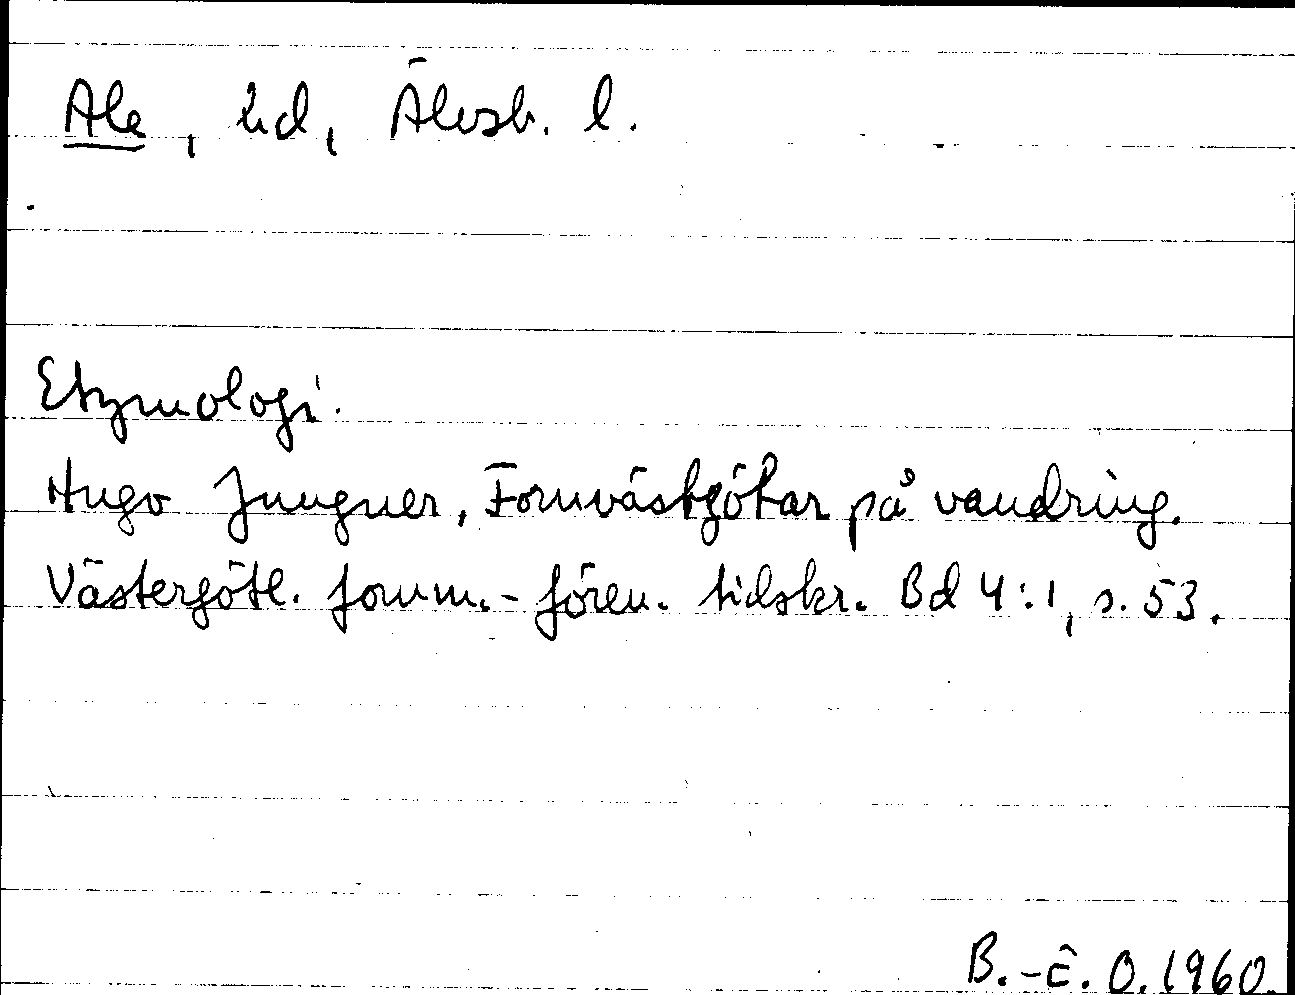 Ale, hd, Älvsb. l.
Etymologi.
Hugo Jungner, Fornvästgötar på vandring.
Västergötl. fornm.-fören. tidskr. Bd 4:1, s. 53.
B.-E. O. 1960.